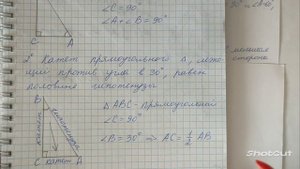 ∠C = 90°
∠A + ∠B = 90°
C A
2° Катет прямоугольного Δ, лежа-
щий против угла в 30°, равен
половине гипотенузы
B
катет
гипотенуза
C катет A
ΔABC - прямоугольный
∠C = 90°
∠B = 30° ⇒ AC = 1/2 AB
сторона
Made with
ShotCut